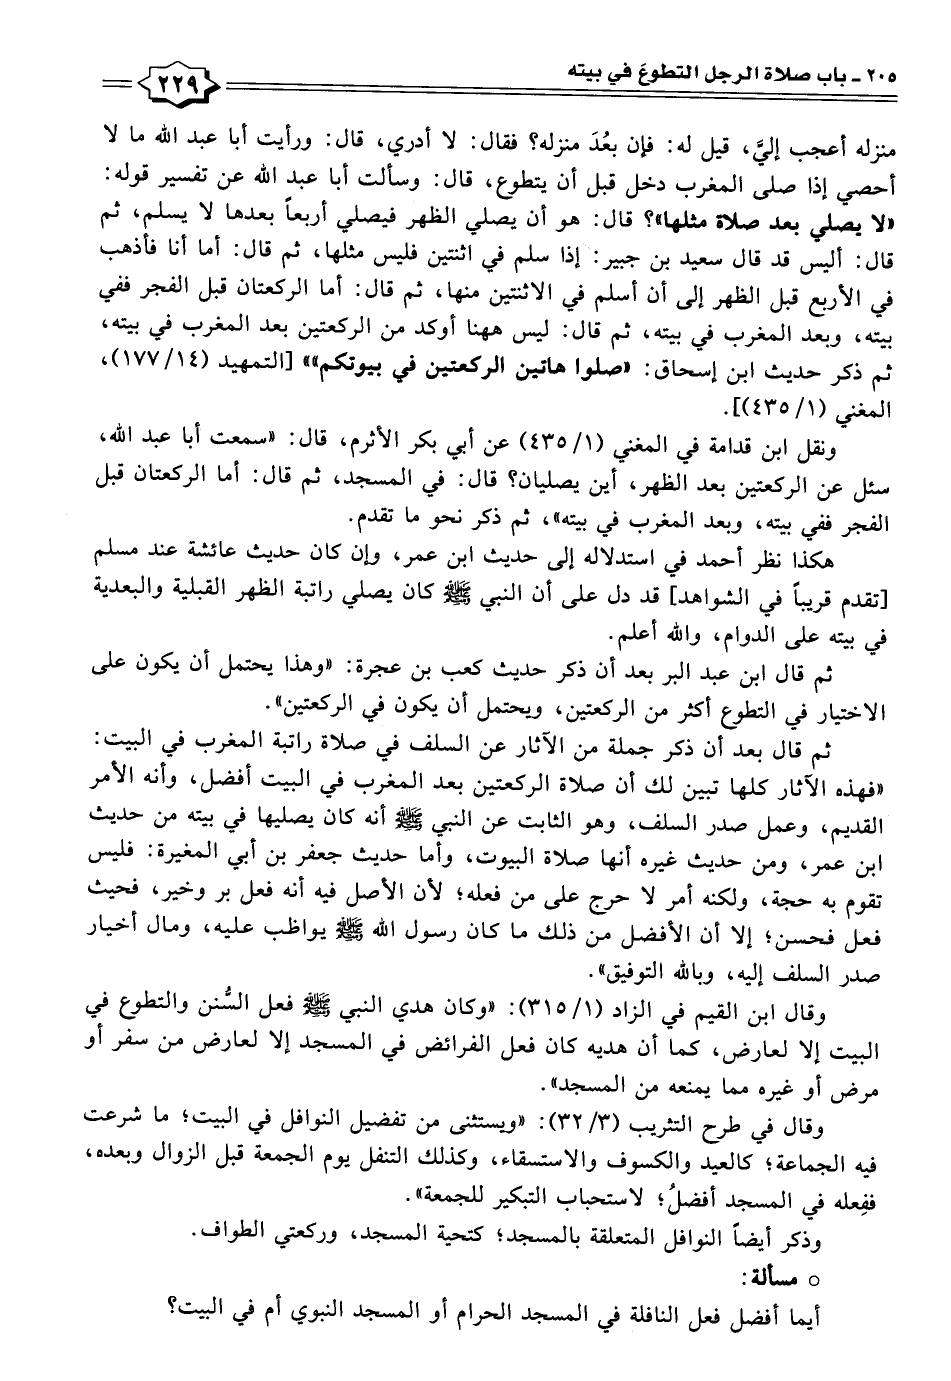 ٢٠٥ - باب صلاة الرجل التطوعَ في بيته
٢٢٩
منزله أعجب إليَّ، قيل له: فإن بعُدَ منزله؟ فقال: لا أدري، قال: ورأيت أبا عبد الله ما لا
أحصي إذا صلى المغرب دخل قبل أن يتطوع، قال: وسألت أبا عبد الله عن تفسير قوله:
«لا يصلي بعد صلاة مثلها»؟ قال: هو أن يصلي الظهر فيصلي أربعاً بعدها لا يسلم، ثم
قال: أليس قد قال سعيد بن جبير: إذا سلم في اثنتين فليس مثلها، ثم قال: أما أنا فأذهب
في الأربع قبل الظهر إلى أن أسلم في الاثنتين منها، ثم قال: أما الركعتان قبل الفجر ففي
بيته، وبعد المغرب في بيته، ثم قال: ليس ههنا أوكد من الركعتين بعد المغرب في بيته،
ثم ذكر حديث ابن إسحاق: «صلوا هاتين الركعتين في بيوتكم»» [التمهيد (١٤/ ١٧٧)،
المغني (١/ ٤٣٥)].
ونقل ابن قدامة في المغني (١/ ٤٣٥) عن أبي بكر الأثرم، قال: «سمعت أبا عبد الله،
سئل عن الركعتين بعد الظهر، أين يصليان؟ قال: في المسجد، ثم قال: أما الركعتان قبل
الفجر ففي بيته، وبعد المغرب في بيته»، ثم ذكر نحو ما تقدم.
هكذا نظر أحمد في استدلاله إلى حديث ابن عمر، وإن كان حديث عائشة عند مسلم
[تقدم قريباً في الشواهد] قد دل على أن النبي ﷺ كان يصلي راتبة الظهر القبلية والبعدية
في بيته على الدوام، والله أعلم.
ثم قال ابن عبد البر بعد أن ذكر حديث كعب بن عجرة: «وهذا يحتمل أن يكون على
الاختيار في التطوع أكثر من الركعتين، ويحتمل أن يكون في الركعتين».
ثم قال بعد أن ذكر جملة من الآثار عن السلف في صلاة راتبة المغرب في البيت:
«فهذه الآثار كلها تبين لك أن صلاة الركعتين بعد المغرب في البيت أفضل، وأنه الأمر
القديم، وعمل صدر السلف، وهو الثابت عن النبي ﷺ أنه كان يصليها في بيته من حديث
ابن عمر، ومن حديث غيره أنها صلاة البيوت، وأما حديث جعفر بن أبي المغيرة: فليس
تقوم به حجة، ولكنه أمر لا حرج على من فعله؛ لأن الأصل فيه أنه فعل بر وخير، فحيث
فعل فحسن؛ إلا أن الأفضل من ذلك ما كان رسول الله ﷺ يواظب عليه، ومال أخيار
صدر السلف إليه، وبالله التوفيق».
وقال ابن القيم في الزاد (١/ ٣١٥): «وكان هدي النبي ﷺ فعل السُّنن والتطوع في
البيت إلا لعارض، كما أن هديه كان فعل الفرائض في المسجد إلا لعارض من سفر أو
مرض أو غيره مما يمنعه من المسجد».
وقال في طرح التثريب (٣/ ٣٢): «ويستثنى من تفضيل النوافل في البيت؛ ما شرعت
فيه الجماعة؛ كالعيد والكسوف والاستسقاء، وكذلك التنفل يوم الجمعة قبل الزوال وبعده،
ففِعله في المسجد أفضلُ؛ لاستحباب التبكير للجمعة».
وذكر أيضاً النوافل المتعلقة بالمسجد؛ كتحية المسجد، وركعتي الطواف.
○ مسألة:
أيما أفضل فعل النافلة في المسجد الحرام أو المسجد النبوي أم في البيت؟